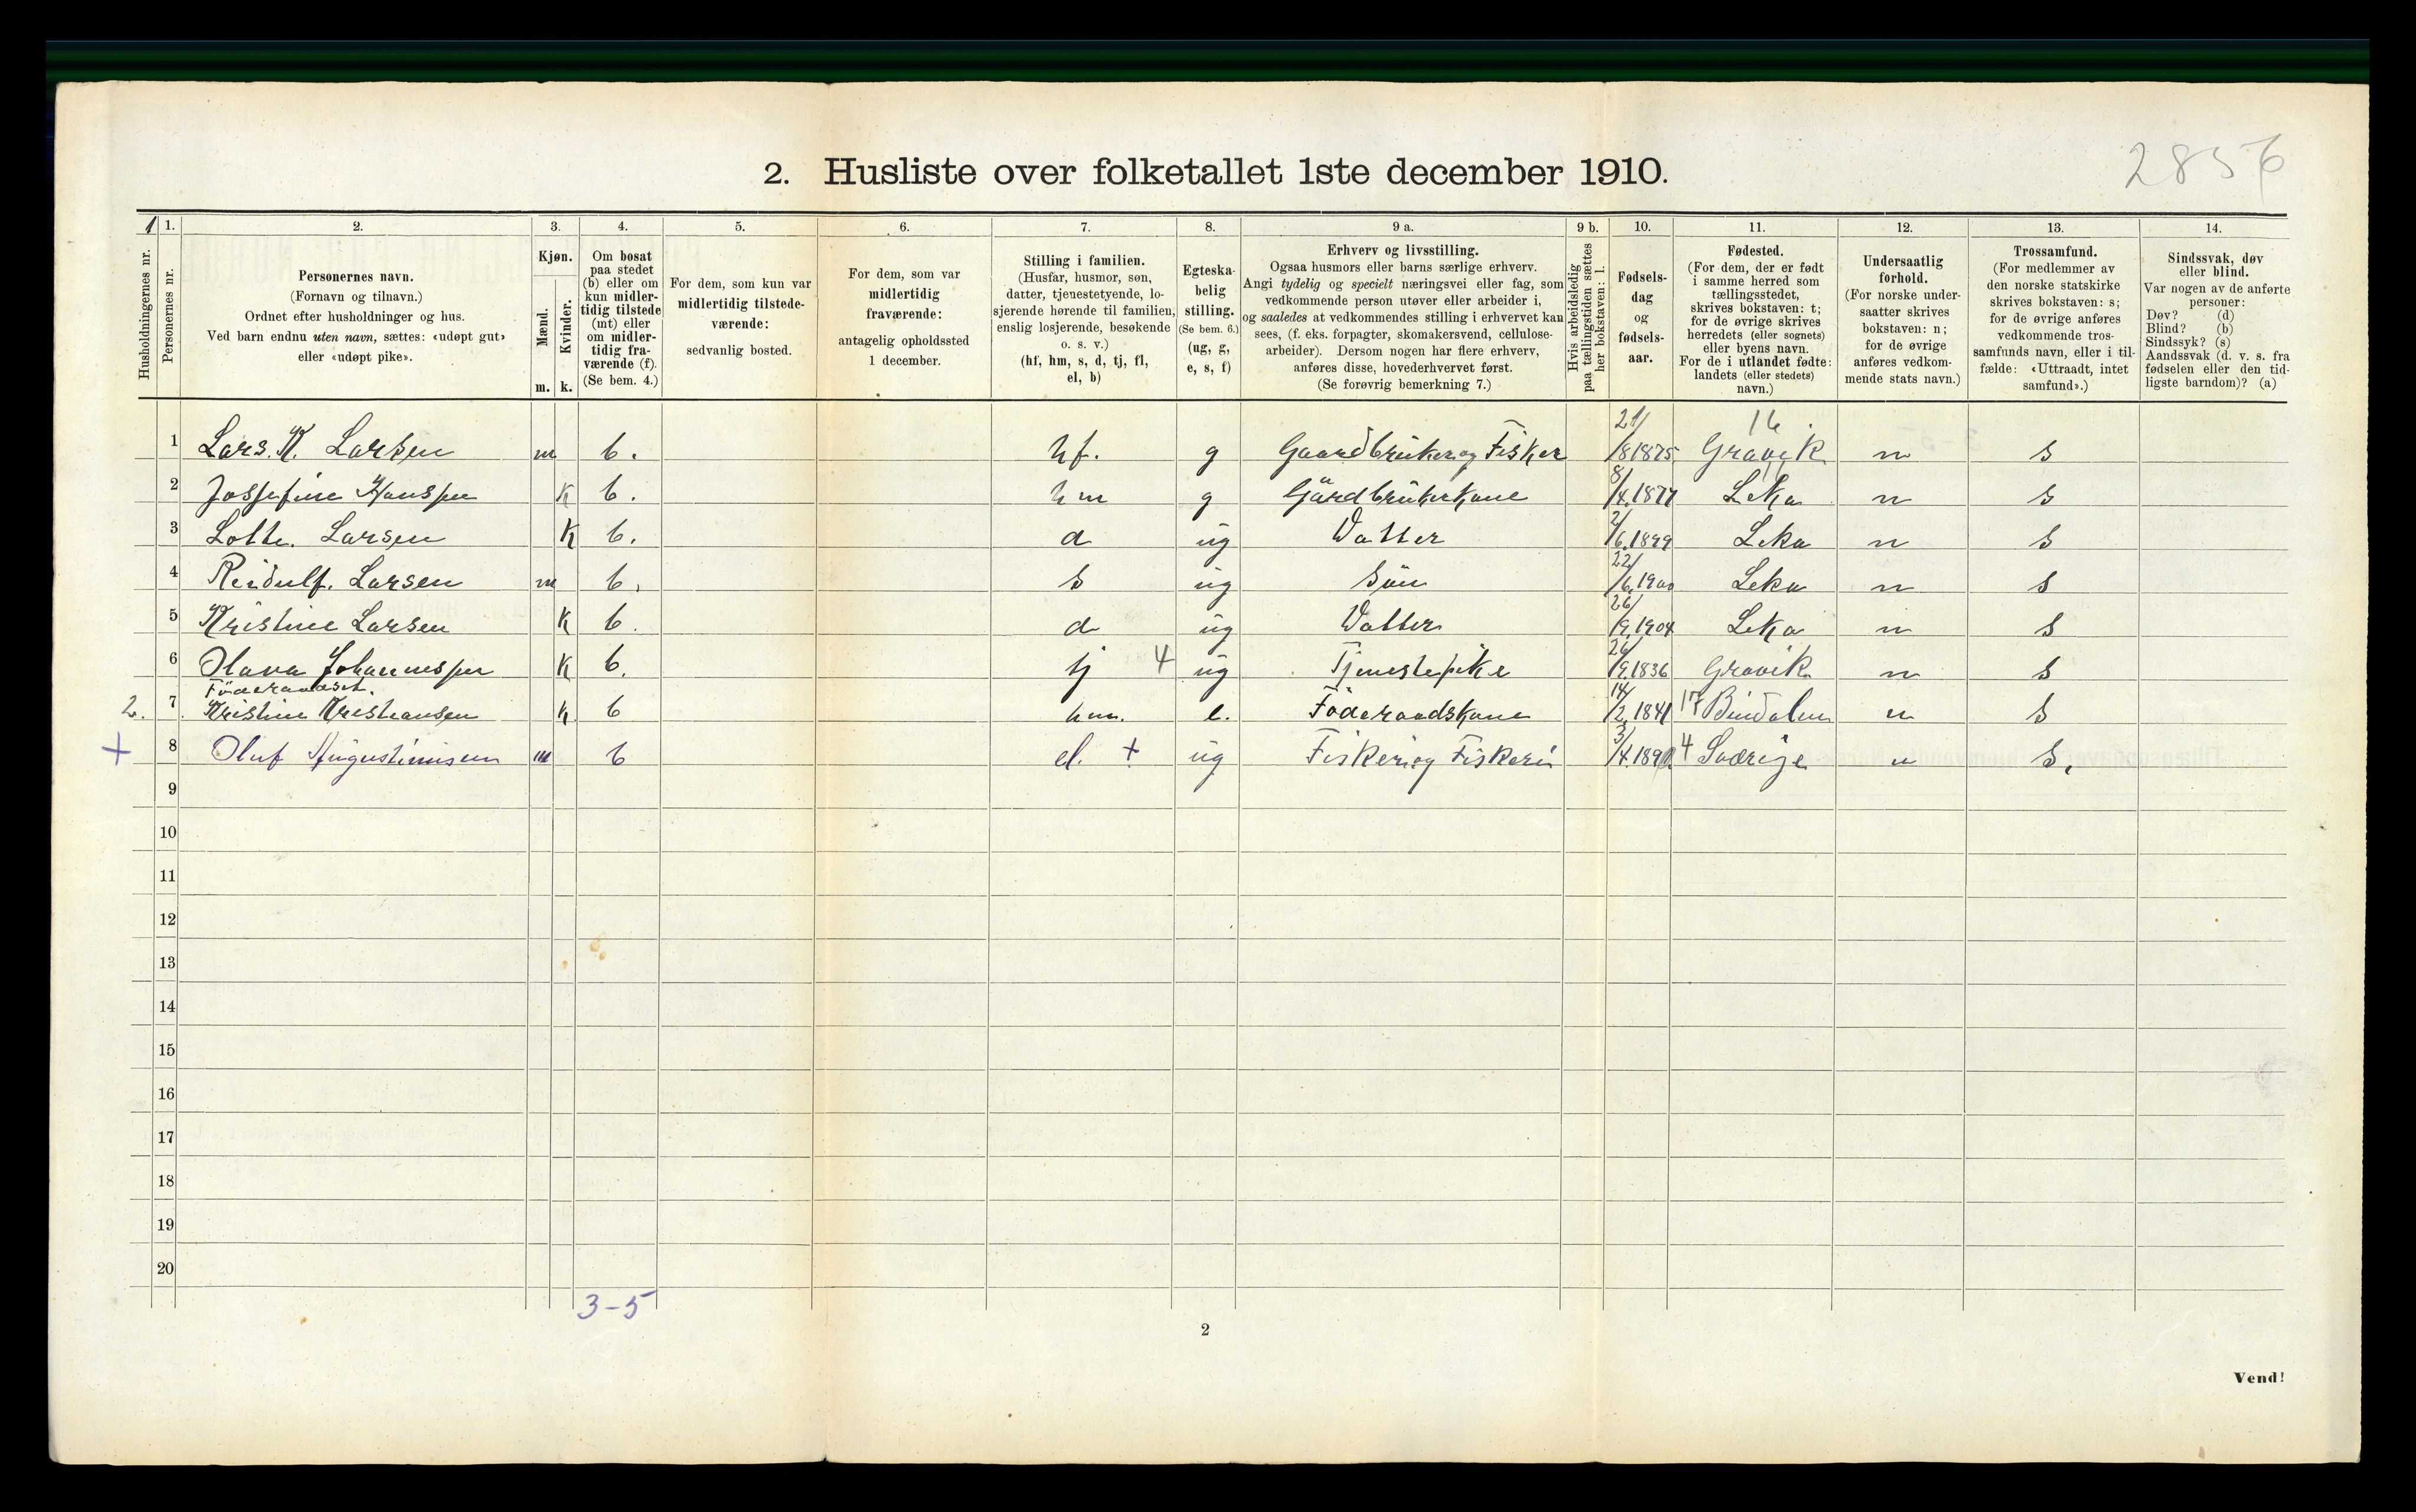 2856
2. Husliste over folketallet 1ste december 1910.
1
Husholdningernes nr.
1.
Personernes nr.
2.
Personernes navn.
(Fornavn og tilnavn.)
Ordnet efter husholdninger og hus.
Ved barn endnu uten navn, sættes: «udøpt gut»
eller «udøpt pike».
3.
Kjøn.
Mænd.
Kvinder.
m. k.
4.
Om bosat
paa stedet
(b) eller om
kun midler-
tidig tilstede
(mt) eller
om midler-
tidig fra-
værende (f).
(Se bem. 4.)
5.
For dem, som kun var
midlertidig tilstede-
værende:
sedvanlig bosted.
6.
For dem, som var
midlertidig
fraværende:
antagelig opholdssted
1 december.
7.
Stilling i familien.
(Husfar, husmor, søn,
datter, tjenestetyende, lo-
sjerende hørende til familien,
enslig losjerende, besøkende
o. s. v.)
(hf, hm, s, d, tj, fl,
el, b)
8.
Egteska-
belig
stilling.
(Se bem. 6.)
(ug, g,
e, s, f)
9 a.
Erhverv og livsstilling.
Ogsaa husmors eller barns særlige erhverv.
Angi tydelig og specielt næringsvei eller fag, som
vedkommende person utøver eller arbeider i,
og saaledes at vedkommendes stilling i erhvervet kan
sees, (f. eks. forpagter, skomakersvend, cellulose-
arbeider). Dersom nogen har flere erhverv,
anføres disse, hovederhvervet først.
(Se forøvrig bemerkning 7.)
9 b.
Hvis arbeidsledig
paa tællingstiden sættes
her bokstaven: l.
10.
Fødsels-
dag
og
fødsels-
aar.
11.
Fødested.
(For dem, der er født
i samme herred som
tællingsstedet,
skrives bokstaven: t;
for de øvrige skrives
herredets (eller sognets)
eller byens navn.
For de i utlandet fødte:
landets (eller stedets)
navn.)
12.
Undersaatlig
forhold.
(For norske under-
saatter skrives
bokstaven: n;
for de øvrige
anføres vedkom-
mende stats navn.)
13.
Trossamfund.
(For medlemmer av
den norske statskirke
skrives bokstaven: s;
for de øvrige anføres
vedkommende tros-
samfunds navn, eller i til-
fælde: «Uttraadt, intet
samfund».)
14.
Sindssvak, døv
eller blind.
Var nogen av de anførte
personer:
Døv? (d)
Blind? (b)
Sindssyk? (s)
Aandssvak (d. v. s. fra
fødselen eller den tid-
ligste barndom)? (a)
1 Lars. K. Larsen m b. hf. g Gaardbruker og Fisker 21/8 1875 16 Gravik n s
2 Jossefine Hanssen K b. hm g Gårdbrukerkone 8/4.1877 Leka n s
3 Lotte. Larsen K b. d ug Datter 2/6.1899 Leka n s
4 Reidulf. Larsen m b. s ug Sön 22/6.1900 Leka n s
5 Kristine Larsen K b. d ug Datter 26/9.1904 Leka n s
6 Olava Johannessen K b. tj 4 ug Tjenestepike 26/9.1836 Gravik n s
Föderaadset.
2. 7 Kristine Kristiansen k b hm. e. Föderaadskone 14/2 1841 17 Bindalen n s
+ 8 Oluf Augustinusen m b el. + ug Fiskeri og Fiskeri 3/4.1890 4 Sverige n s.
9
10
11
12
13
14
15
16
17
18
19
20
3-5
2
Vend!